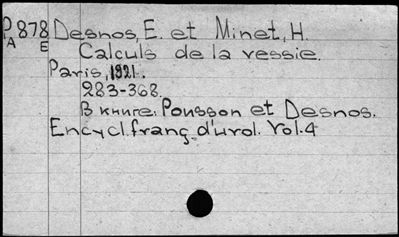 P 878 Desnos, E. et Minet, H.
A E Calculs de la vessie.
Paris, 1921.
283-368.
В книге: Pousson et Desnos.
Encycl. franç. d'urol. Vol. 4